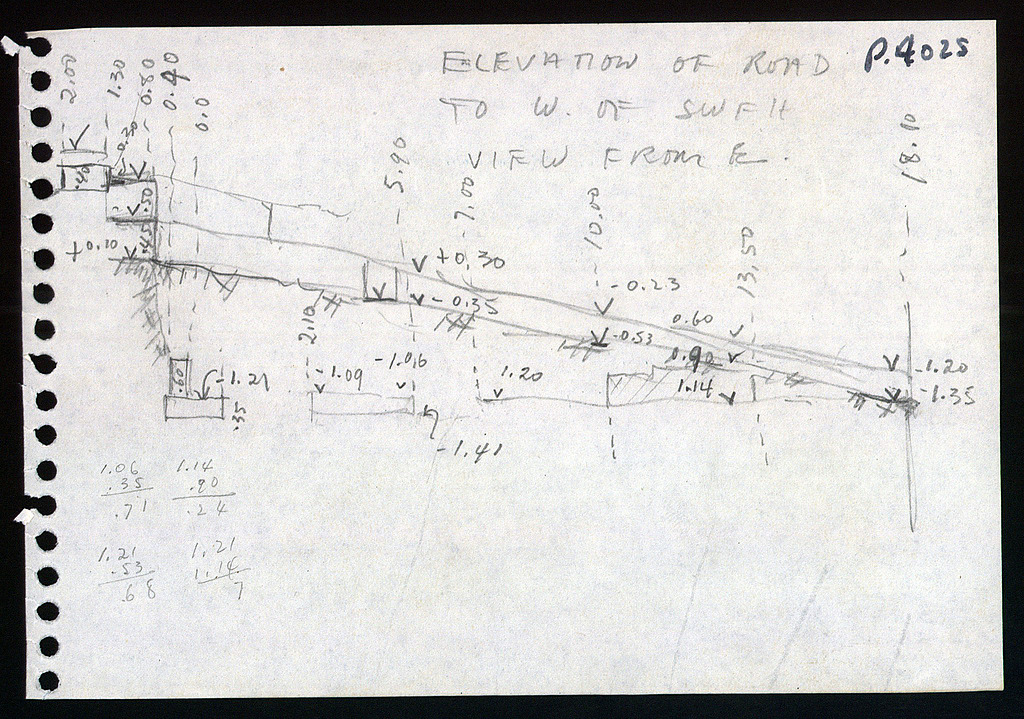 ELEVATION OF ROAD
P.4025
TO W. OF SWFH
VIEW FROM E.
2.00
1.30
0.80
0.40
0.0
0.30
.40
.50
.45
+0.10
5.90
7.00
10.00
13.50
18.10
+0.30
-0.35
-0.23
-0.53
0.60
0.90
1.14
-1.20
-1.35
2.10
-1.09
-1.06
1.20
.60
-1.21
.35
-1.41
1.06
.35
.71
1.14
.90
.24
1.21
.53
.68
1.21
1.14
7